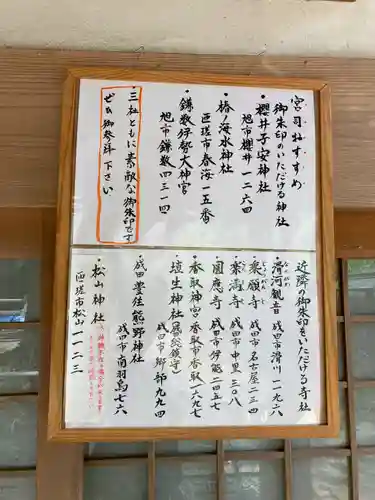 宮司おすすめ
御朱印のいただける神社
・櫻井子安神社
旭市櫻井一二六四
・椿ノ海水神社
匝瑳市春海一五番
・鎌数伊勢大神宮
旭市鎌数四三一四
・三社ともに素敵な御朱印です
ぜひ御参拝下さい
近隣の御朱印をいただける寺社
・滑河観音 成田市滑川一一九六
・楽満寺 成田市中里三〇八
・圓應寺 成田市伊能二四五七
・香取神宮 香取市香取一六九七
・埴生神社
成田市郷部九九四
・成田豊住熊野神社
成田市南羽鳥七六
・松山神社
匝瑳市松山一一二三